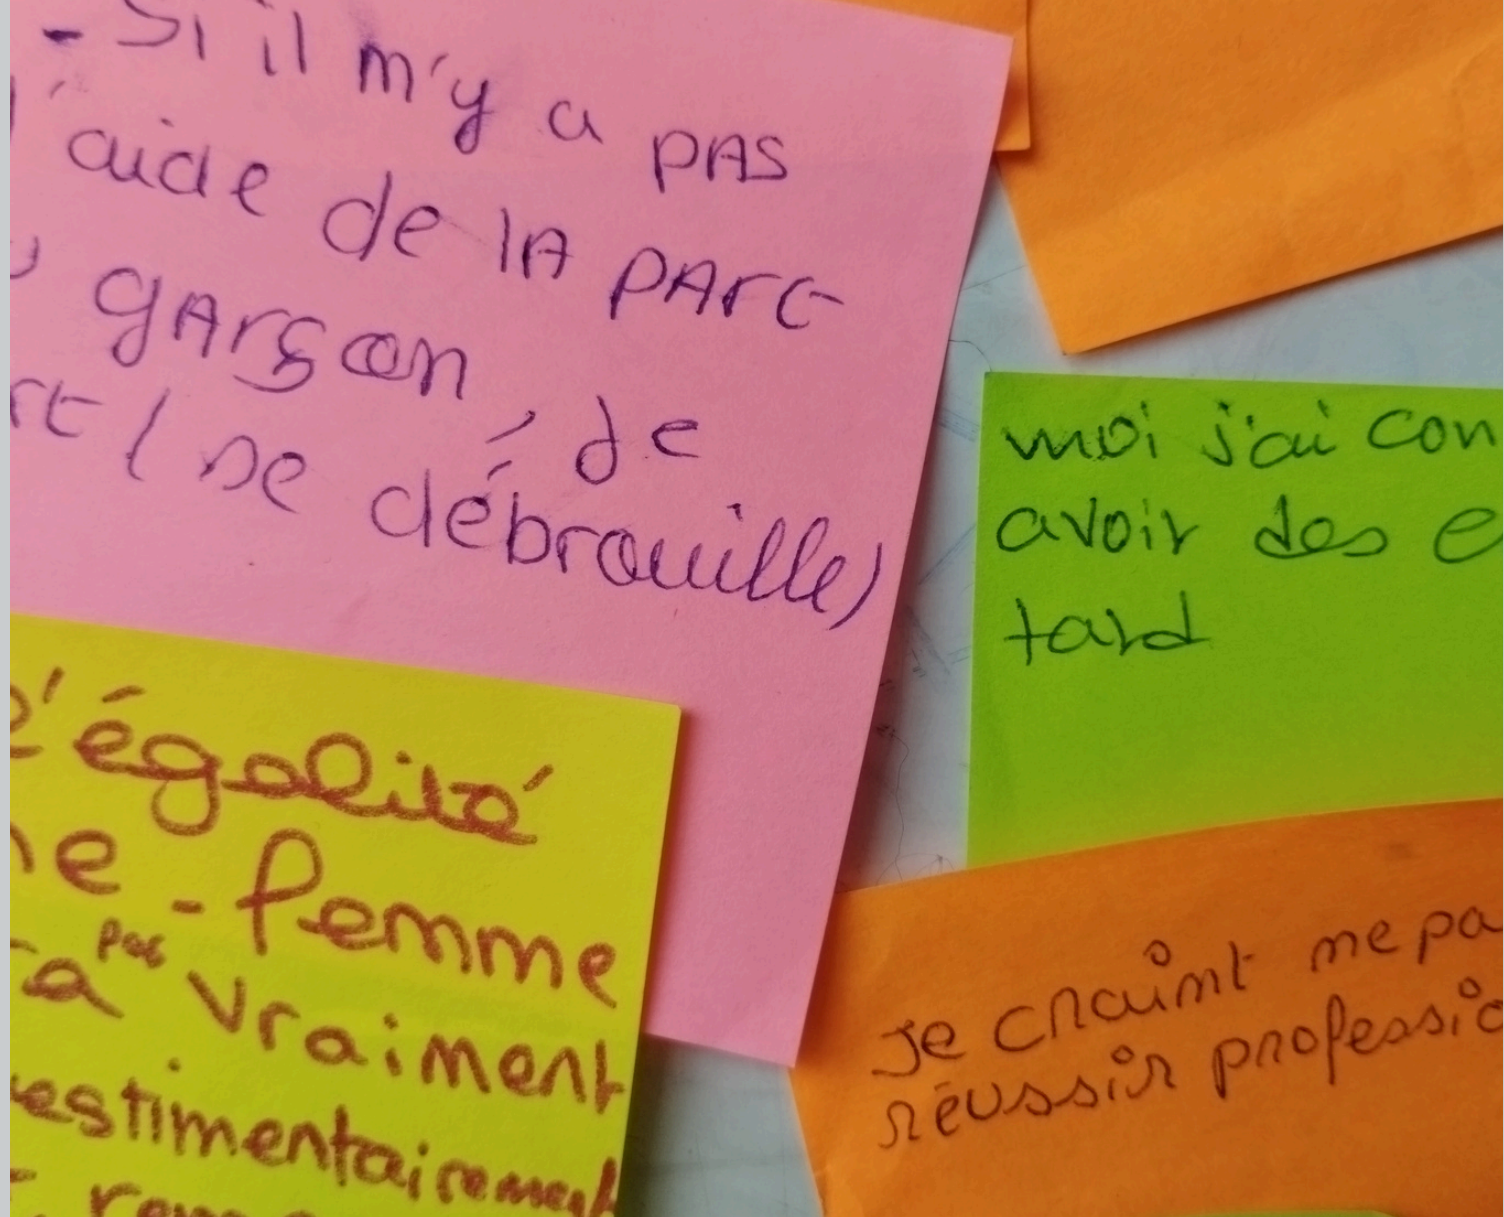 - Si il m'y a PAS
d'aide de lA PArt
garçon, je
( se débrouille)
moi j'ai con
avoir des e
tard
l'égalité
-femme
pas
vraiment
estimentairement
Je craimt me pa
réussir professio